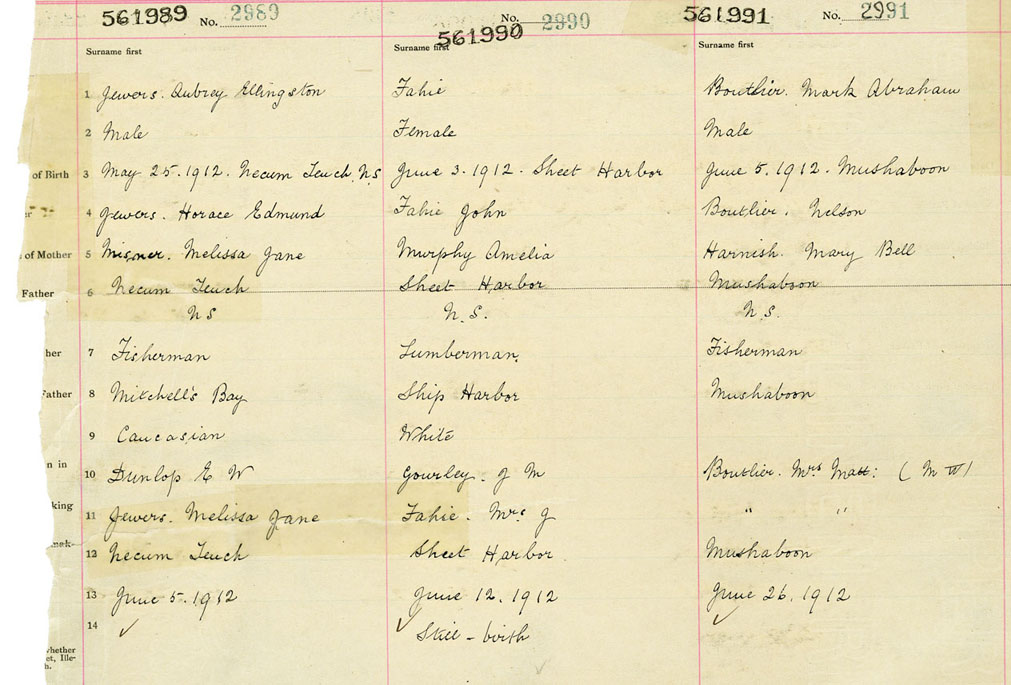 561989 No. 2989 561990 No. 2990 561991 No. 2991
Surname first Surname first Surname first
1 Jewers. Aubrey Ellingston Fahie Boutlier. Mark Abraham
2 Male Female Male
of Birth 3 May 25. 1912. Necum Teuch N.S June 3. 1912. Sheet Harbor June 5. 1912. Mushaboon
er 4 Jewers. Horace Edmund Fahie John Boutlier. Nelson
of Mother 5 Misner. Melissa Jane Murphy Amelia Harnish. Mary Bell
Father 6 Necum Teuch Sheet Harbor Mushaboon
N S N.S. N.S.
her 7 Fisherman Lumberman. Fisherman
Father 8 Mitchell's Bay Ship Harbor Mushaboon
9 Caucasian White
n in 10 Dunlop E W Gourley. J M Boutlier. Mrs Matt: ( M W )
king 11 Jewers. Melissa Jane Fahie. Mrs J " "
mak- 12 Necum Teuch Sheet Harbor Mushaboon
13 June 5. 1912 June 12. 1912 June 26. 1912
14 ✓ ✓ Still - birth ✓
whether
et, Ille-
h.